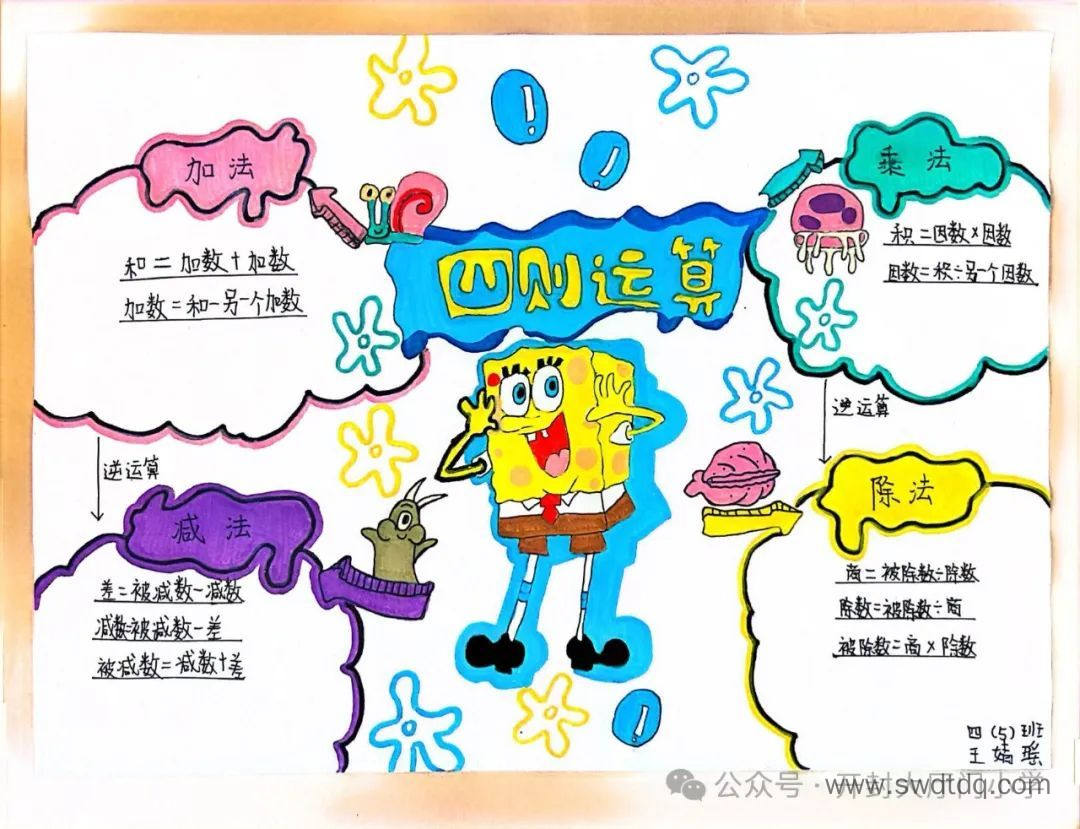 四则运算
加法
和=加数+加数
加数=和-另一个加数
逆运算
减法
差=被减数-减数
减数=被减数-差
被减数=减数+差
乘法
积=因数×因数
因数=积÷另一个因数
逆运算
除法
商=被除数÷除数
除数=被除数÷商
被除数=商×除数
四(5)班
公众号·开封
www.swdtdq.com